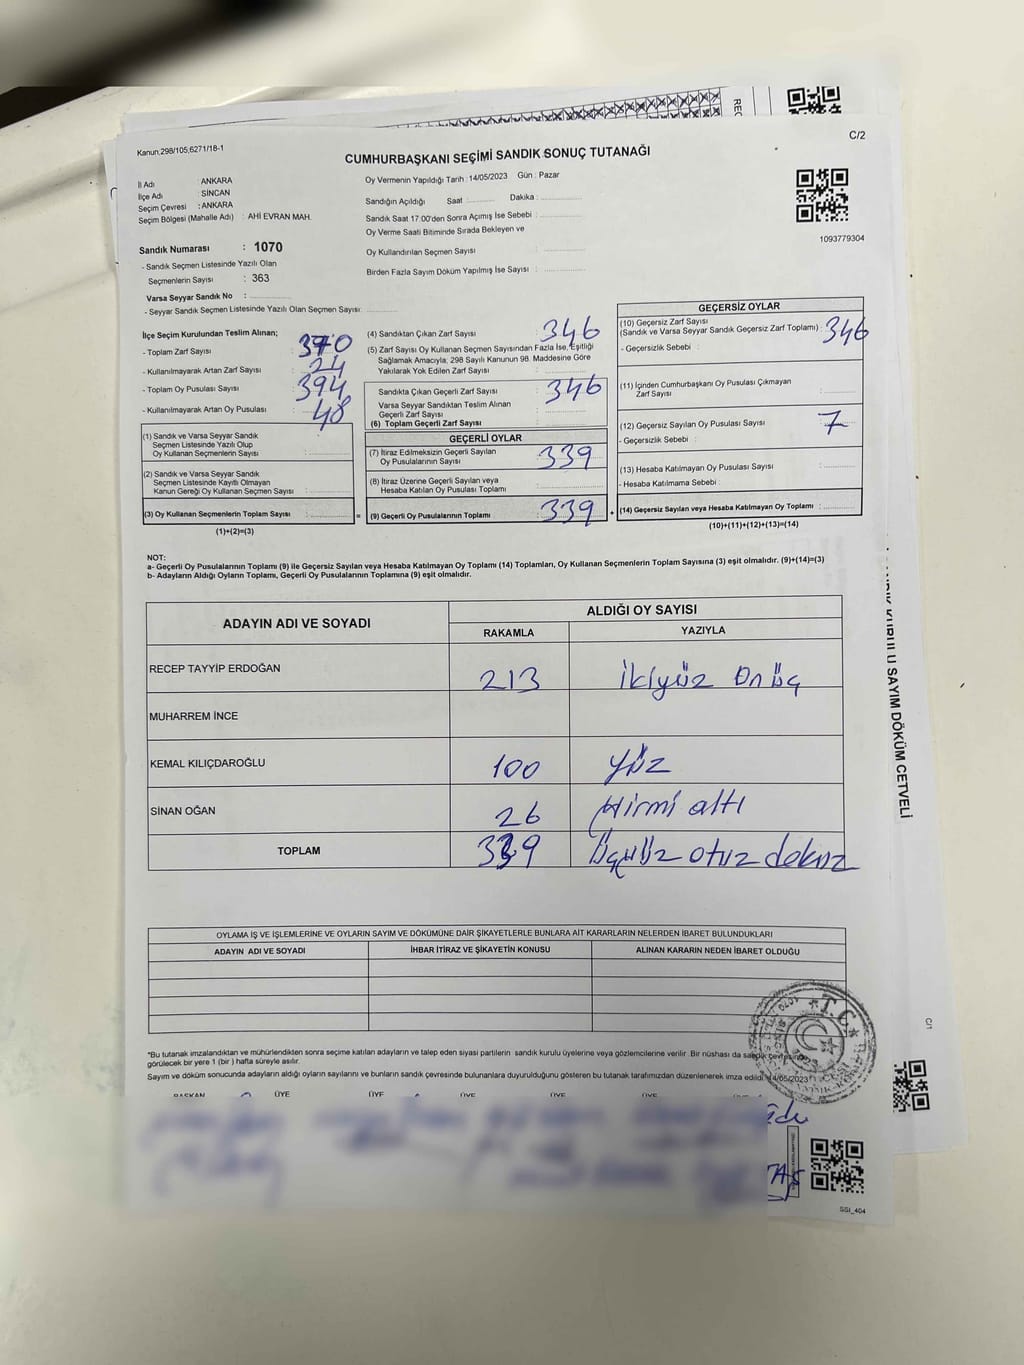 C/2
Kanun;298/105,6271/18-1
CUMHURBAŞKANI SEÇİMİ SANDIK SONUÇ TUTANAĞI
İl Adı : ANKARA
İlçe Adı : SİNCAN
Seçim Çevresi : ANKARA
Seçim Bölgesi (Mahalle Adı) : AHİ EVRAN MAH.
Oy Vermenin Yapıldığı Tarih : 14/05/2023 Gün : Pazar
Sandığın Açıldığı Saat : Dakika :
Sandık Saat 17.00'den Sonra Açımış İse Sebebi :
Oy Verme Saati Bitiminde Sırada Bekleyen ve
Oy Kullandırılan Seçmen Sayısı :
Birden Fazla Sayım Döküm Yapılmış İse Sayısı :
1093779304
Sandık Numarası : 1070
- Sandık Seçmen Listesinde Yazılı Olan
Seçmenlerin Sayısı : 363
Varsa Seyyar Sandık No :
- Seyyar Sandık Seçmen Listesinde Yazılı Olan Seçmen Sayısı:
İlçe Seçim Kurulundan Teslim Alınan;
- Toplam Zarf Sayısı : 370
- Kullanılmayarak Artan Zarf Sayısı : 24
- Toplam Oy Pusulası Sayısı : 394
- Kullanılmayarak Artan Oy Pusulası : 48
(1) Sandık ve Varsa Seyyar Sandık
Seçmen Listesinde Yazılı Olup
Oy Kullanan Seçmenlerin Sayısı :
(2) Sandık ve Varsa Seyyar Sandık
Seçmen Listesinde Kayıtlı Olmayan
Kanun Gereği Oy Kullanan Seçmen Sayısı :
(3) Oy Kullanan Seçmenlerin Toplam Sayısı : =
(1)+(2)=(3)
(4) Sandıktan Çıkan Zarf Sayısı : 346
(5) Zarf Sayısı Oy Kullanan Seçmen Sayısından Fazla İse, Eşitliği
Sağlamak Amacıyla; 298 Sayılı Kanunun 98. Maddesine Göre
Yakılarak Yok Edilen Zarf Sayısı :
Sandıkta Çıkan Geçerli Zarf Sayısı : 346
Varsa Seyyar Sandıktan Teslim Alınan
Geçerli Zarf Sayısı :
(6) Toplam Geçerli Zarf Sayısı :
GEÇERLİ OYLAR
(7) İtiraz Edilmeksizin Geçerli Sayılan
Oy Pusulalarının Sayısı : 339
(8) İtiraz Üzerine Geçerli Sayılan veya
Hesaba Katılan Oy Pusulası Toplamı :
(9) Geçerli Oy Pusulalarının Toplamı : 339 +
GEÇERSİZ OYLAR
(10) Geçersiz Zarf Sayısı
(Sandık ve Varsa Seyyar Sandık Geçersiz Zarf Toplamı) : 346
- Geçersizlik Sebebi :
(11) İçinden Cumhurbaşkanı Oy Pusulası Çıkmayan
Zarf Sayısı :
(12) Geçersiz Sayılan Oy Pusulası Sayısı : 7
- Geçersizlik Sebebi :
(13) Hesaba Katılmayan Oy Pusulası Sayısı :
- Hesaba Katılmama Sebebi :
(14) Geçersiz Sayılan veya Hesaba Katılmayan Oy Toplamı :
(10)+(11)+(12)+(13)=(14)
NOT:
a- Geçerli Oy Pusulalarının Toplamı (9) ile Geçersiz Sayılan veya Hesaba Katılmayan Oy Toplamı (14) Toplamları, Oy Kullanan Seçmenlerin Toplam Sayısına (3) eşit olmalıdır. (9)+(14)=(3)
b- Adayların Aldığı Oyların Toplamı, Geçerli Oy Pusulalarının Toplamına (9) eşit olmalıdır.
ADAYIN ADI VE SOYADI
ALDIĞI OY SAYISI
RAKAMLA YAZIYLA
RECEP TAYYİP ERDOĞAN 213 ikiyüz onüç
MUHARREM İNCE
KEMAL KILIÇDAROĞLU 100 yüz
SİNAN OĞAN 26 yirmi altı
TOPLAM 339 üçyüz otuz dokuz
OYLAMA İŞ VE İŞLEMLERİNE VE OYLARIN SAYIM VE DÖKÜMÜNE DAİR ŞİKAYETLERLE BUNLARA AİT KARARLARIN NELERDEN İBARET BULUNDUKLARI
ADAYIN ADI VE SOYADI İHBAR İTİRAZ VE ŞİKAYETİN KONUSU ALINAN KARARIN NEDEN İBARET OLDUĞU
*Bu tutanak imzalandıktan ve mühürlendikten sonra seçime katılan adayların ve talep eden siyasi partilerin sandık kurulu üyelerine veya gözlemcilerine verilir. Bir nüshası da sandık çevresinde
görülecek bir yere 1 (bir ) hafta süreyle asılır.
Sayım ve döküm sonucunda adayların aldığı oyların sayılarını ve bunların sandık çevresinde bulunanlara duyurulduğunu gösteren bu tutanak tarafımızdan düzenlenerek imza edildi. 14/05/2023
BAŞKAN ÜYE ÜYE ÜYE ÜYE ÜYE ÜYE
T.C.
SANDIK KURULU SAYIM DÖKÜM CETVELİ
C/1
SSI_404